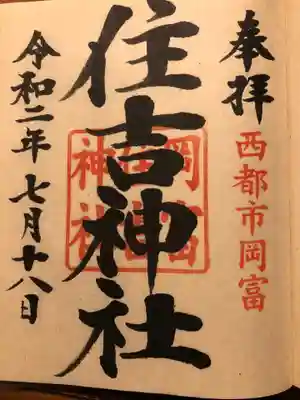 奉拝
西都市岡富
住吉神社
岡富
住吉
神社
令和二年七月十八日